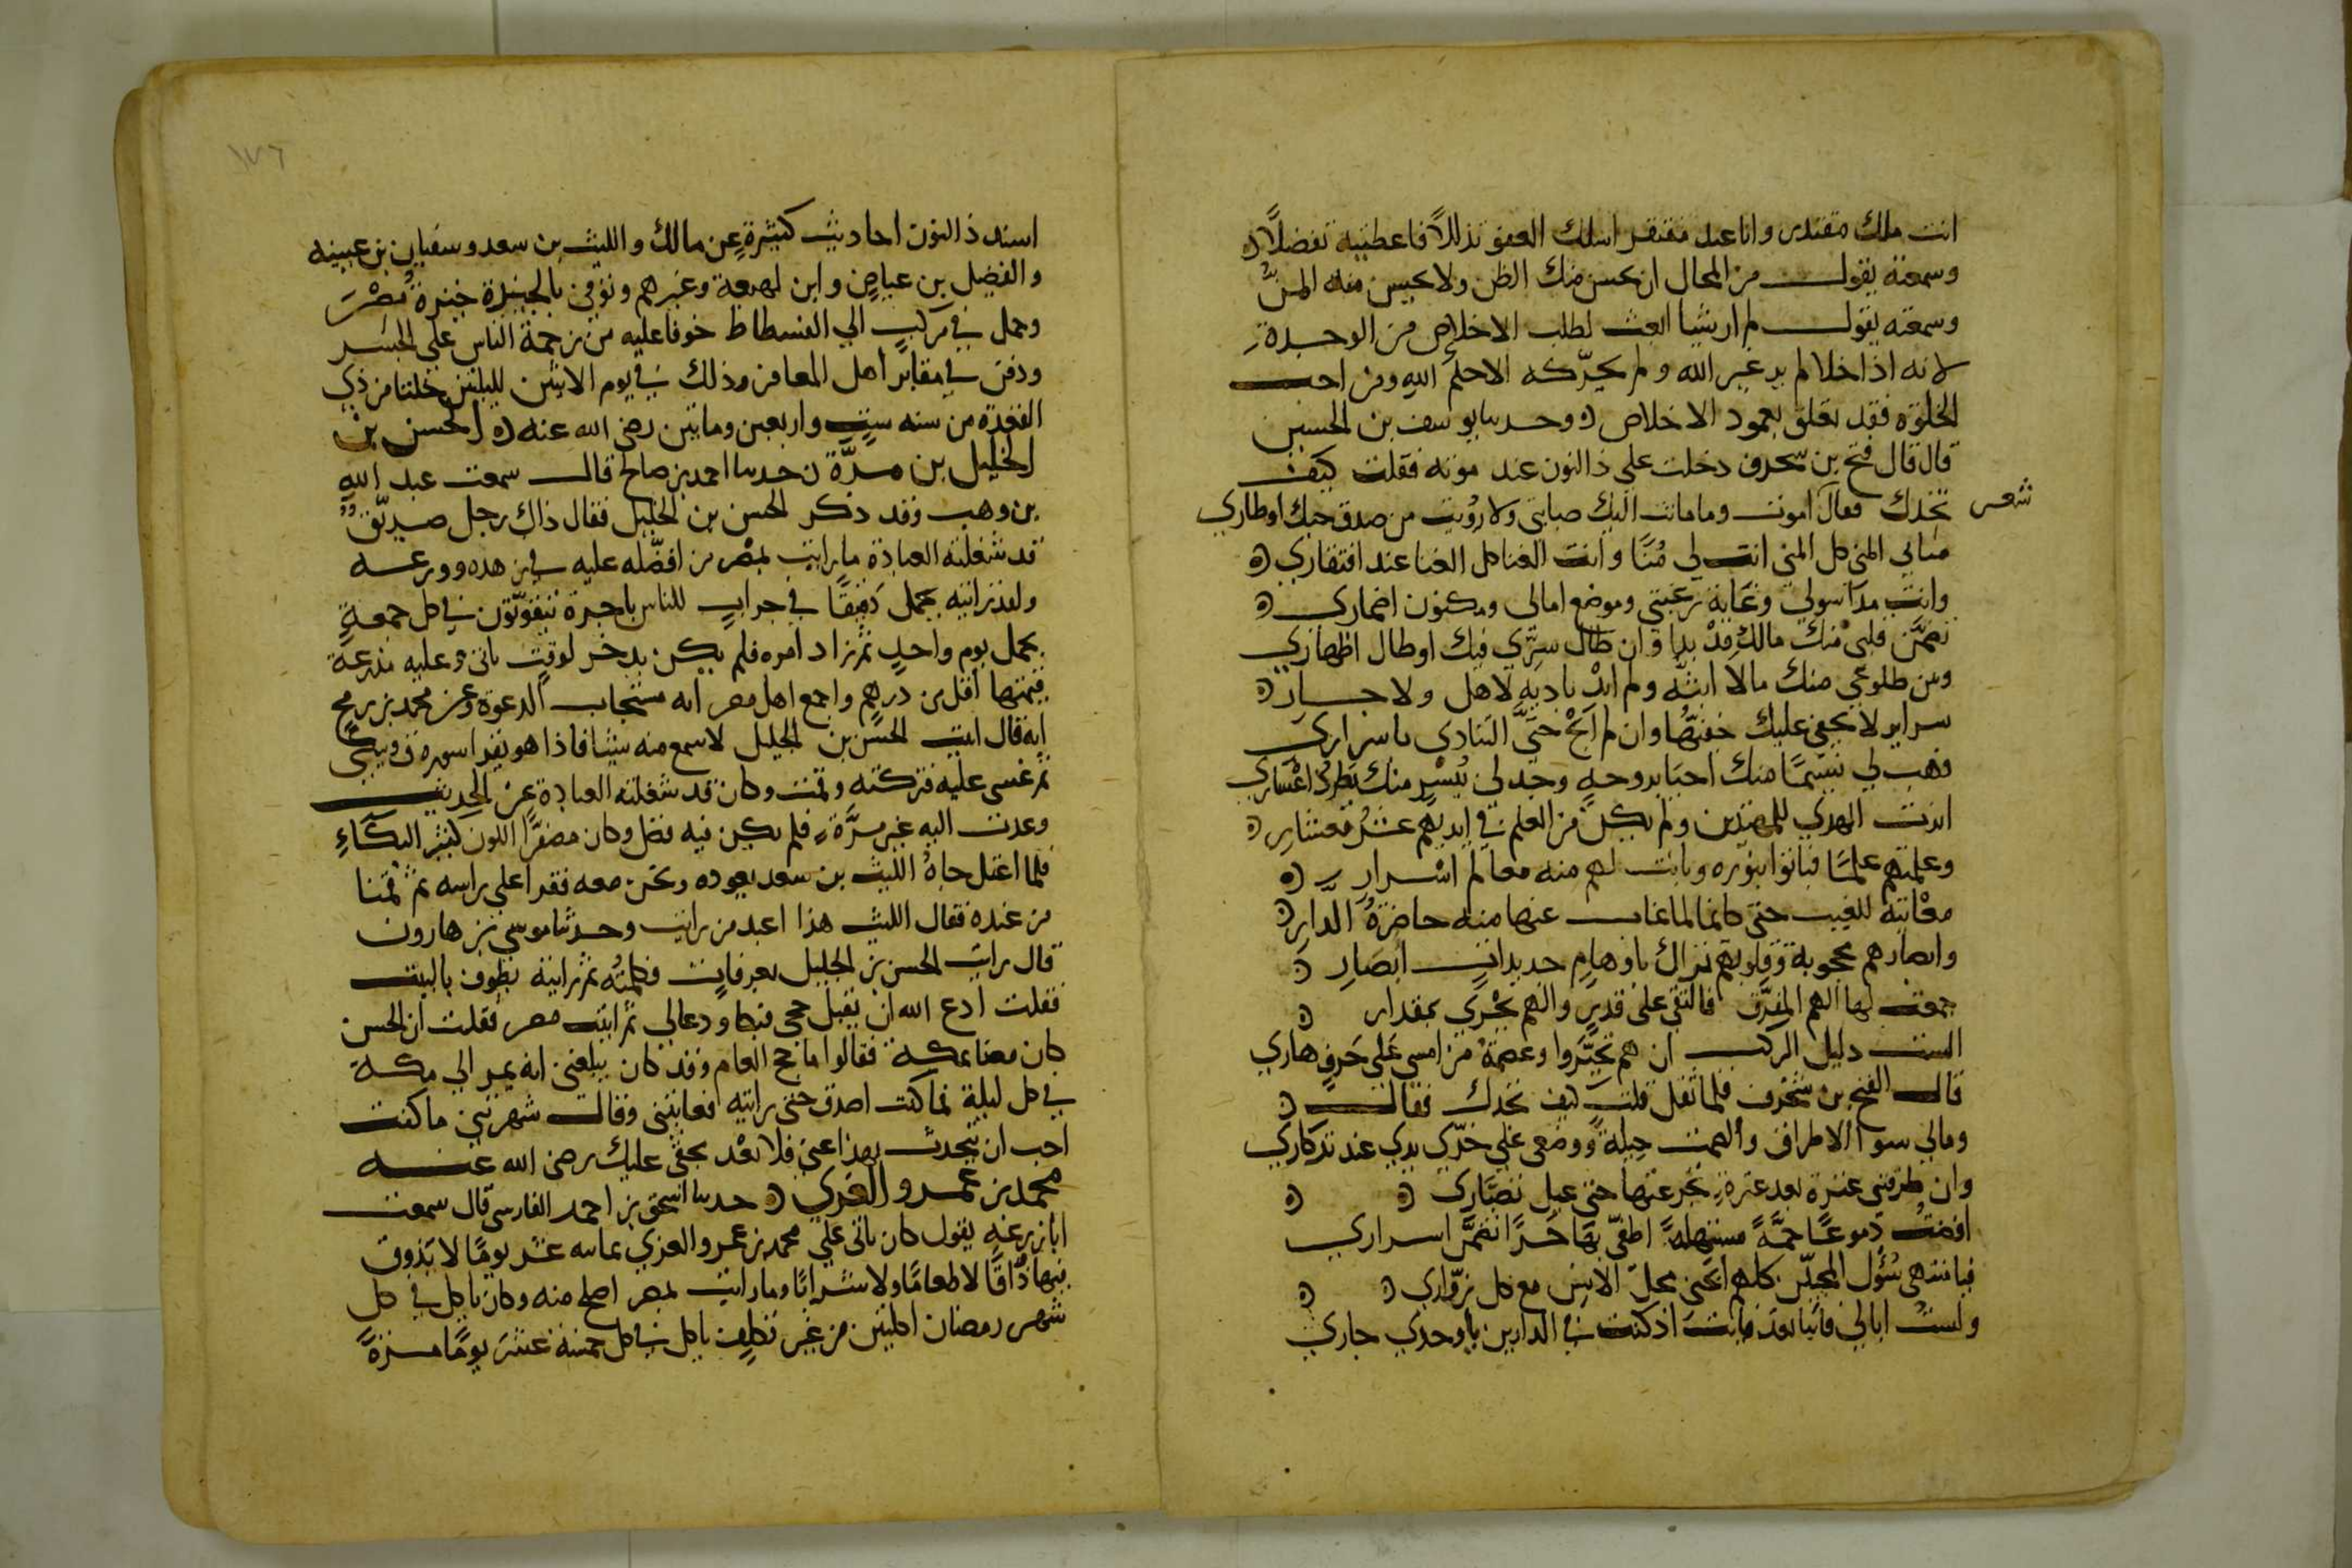 انت ملك مقتدر وانا عبد مفتقر اسلك العفو تذللاً فاعطنيه تفضلاً
وسمعته يقول من المحال ان يحسن منك الظن ولا يحسن منه المنُّ
وسمعته يقول لم ار شيا ابعث لطلب الاخلاص من الوحدة
لانه اذا خلا لم ير غير الله ولم يحرّكه الا حكم الله ومن احب
الخلوة فقد تعلق بعمود الاخلاص وحدثنا يوسف بن الحسين
قال قال فتح بن سحرف دخلت على ذا النون عند موته فقلت كيف
شعر
تجدك فقال اموت وما ماتت اليك صبابتي ولا رُويت من صدق حبك اوطاري
مناي المنى كل المنى انت لي مُنًا وانت الغنا كل الغنا عند افتقاري
وانت مدا سولي وغاية رغبتي وموضع امالي ومكنون اضماري
تضمَّن قلبي منك مالك قدْ بدا وان طال سرّي فيك او طال اظهاري
وبين ضلوعي منك مالا ابثّه ولم ابدْ باديه لاهل ولا جار
سراير لا يخفى عليك خفيّها وان لم ابُحْ حتى التنادي باسراري
فهب لي نسيمًا منك احيا بروحه وجد لي بيُسْرٍ منك يطرد اعْساري
انرت الهدى للمهتدين ولم يكن من العلم في ايديهم عشرُ معشار
وعلمتهم علمًا فباتوا بنوره وبانت لهم منه معالم اسْرار
معاينة للغيب حتى كانها لما غاب عنها منه حاضرةُ الدار
وابصارهم محجوبة وقلوبهم تراك باوهامٍ حديدات ابصار
جمعت لها الهم المفرّق فالتقى على قدرٍ والهم يجْري بمقدار
الست دليل الركب ان هم تحيّروا وعصمة من امسى على حَرفٍ هاري
قال الفتح بن سحرف فلما ثقل قلت كيف تجدك فقال
ومالي سوا الاطراق والصمت حيلة ووضعى على خدّي يدي عند تذكاري
وان طرقتني عبرة بعد عبرة تجرعتها حتى عيل تصبّاري
افضتُ دموعًا جمَّةً مستهلةً اطفي بها حَرًا تضمَّن اسراري
فيا منتهى سُؤل المحبّين كلهم ابحني محلّ الانس مع كل زوّاري
ولستُ ابالي فائتا بعد فائت اذ كنت في الدارين يا واحدي جاري
١٧٦
اسند ذا النون احاديث كثيرةٍ عن مالك والليث بن سعد وسفيان بن عيينه
والفضيل بن عياض وابن لهيعة وغيرهم وتوفي بالجيزة جيزة مصْر
وحمل في مركب الى الفسطاط خوفا عليه من زحمة الناس على الجسر
ودفن في مقابر اهل المعافر وذلك في يوم الاثنين لليلتين خلتا من ذي
القعدة من سنه ست واربعين وماتين رضى الله عنه الحسن بن
الخليل بن مرَّة حدثنا احمد بن صالح قال سمعت عبد الله
بن وهب وقد ذكر الحسن بن الخليل فقال ذاك رجل صديّق
قد شغلته العبادة ما رايت بمصر من افضّله عليه في زهده وورعه
ولقد رايته يحمل دقيقًا في جراب للناس باجرة يتقوّت في كل جمعةٍ
بحمل يوم واحدٍ ثم زاد امره فلم يكن يدخر لوقتٍ ياتي وعليه مدرعة
قيمتها اقل من درهم واجمع اهل مصر انه مستجاب الدعوة وعن محمد بن رمح
انه قال اتيت الحسن بن الخليل لاسمع منه شيئا فاذا هو يقرا سوره ق ويبكي
ثم غشى عليه فتركته وقمت وكان قد شغلته العبادة عن الحديث
وعدت اليه غير مرَّة فلم يكن فيه فضل وكان مصفرَّ اللون كثير البكآءِ
فلما اعتل جاهُ الليث بن سعد يعوده ونحن معه فقرا على راسه ثم قمنا
من عنده فقال الليث هذا اعبد من رايت وحدثنا موسى بن هارون
قال رايت الحسن بن الخليل بعرفاتٍ فكلمتُه ثم رايته يطوف بالبيت
فقلت ادع الله ان يقبل حجى فبكا ودعا لي ثم اتيت مصر فقلت ان الحسن
كان معنا بمكة فقالوا ما حج العام وقد كان يبلغني انه يمر الى مكة
في كل ليلة فما كنت اصدق حتى رايته فعاتبني وقال شهرتني ما كنت
احب ان تحدث بهذا عني فلا تعْد بحقي عليك رضى الله عنه
محمد بن عمرو الغزي حدثنا اسحق بن احمد الفارسي قال سمعت
ابا زرعه يقول كان ياتي على محمد بن عمرو الغزي ثمانيه عشر يومًا لا يذوق
فيها ذَاقًا لا طعامًا ولا شرابًا وما رايت بمصر اصلح منه وكان ياكل في كل
شهر رمضان اكلتين من غير تكلف ياكل في كل خمسة عشر يومًا مرةً